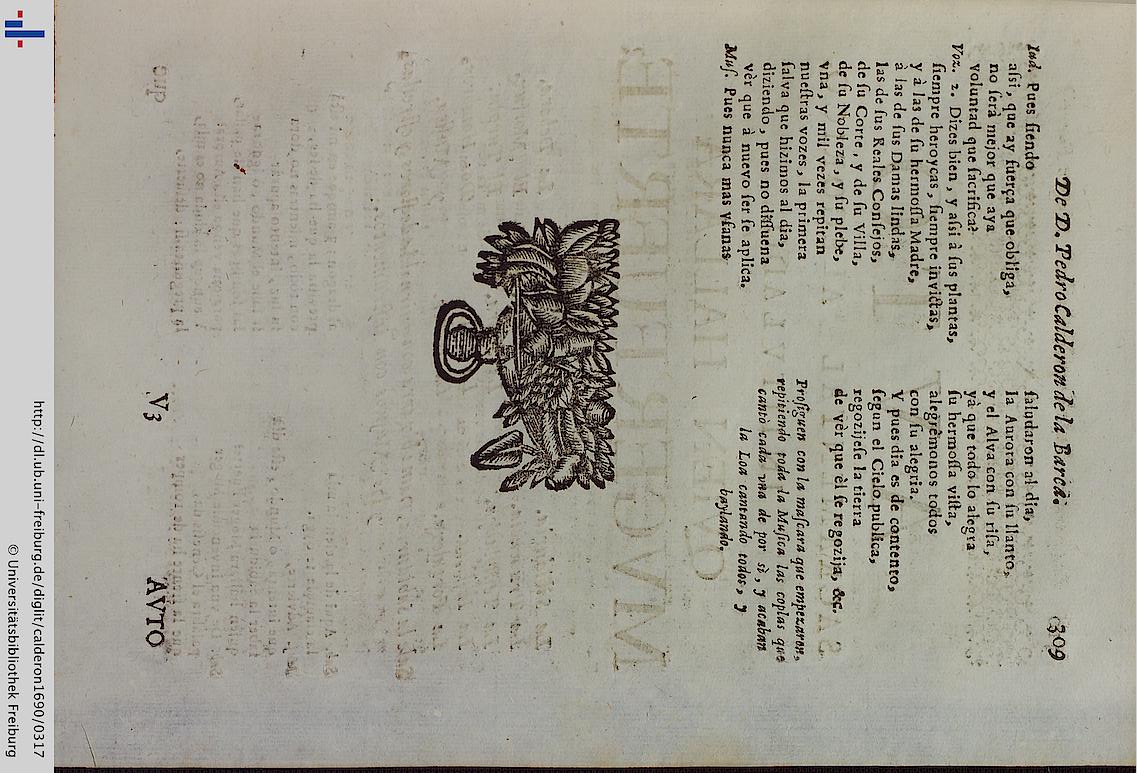 De D. Pedro Calderon de la Barca. 309
Iud. Pues ſiendo
aſsi, que ay fuerça que obliga,
no ſerà mejor que aya
voluntad que ſacrifica?
Voz. 2. Dizes bien, y aſsi à ſus plantas,
ſiempre heroycas, ſiempre invictas,
y à las de ſu hermoſſa Madre,
à las de ſus Damas lindas,
las de ſus Reales Conſejos,
de ſu Corte, y de ſu Villa,
de ſu Nobleza, y ſu plebe,
vna, y mil vezes repitan
nueſtras vozes, la primera
ſalva que hizimos al dia,
diziendo, pues no diſſuena
vèr que à nuevo ſer ſe aplica.
Muſ. Pues nunca mas vſanas
ſaludaron al dia,
la Aurora con ſu llanto,
y el Alva con ſu riſa,
yà que todo lo alegra
ſu hermoſſa viſta,
alegrèmonos todos
con ſu alegria.
Y pues dia es de contento,
ſegun el Cielo publica,
regozijeſe la tierra
de vèr que èl ſe regozija, &c.
Proſiguen con la maſcara que empezaron,
repitiendo toda la Muſica las coplas que
cantò cada vna de por sì, y acaban
la Loa cantando todos, y
baylando.
V3
AVTO
http://dl.ub.uni-freiburg.de/diglit/calderon1690/0317
© Universitätsbibliothek Freiburg